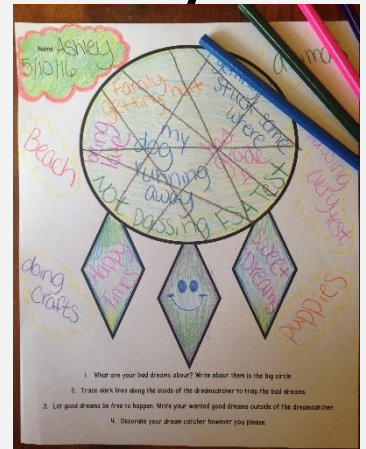 Name: Ashley
5/10/16
Family getting hurt
getting stuck some where
being
my dog running away
Not passing FSA test
Beach
doing crafts
puppies
Happy Times
Sweet Dreams
1. What are your bad dreams about? Write about them in the big circle
2. Trace dark lines along the inside of the dreamcatcher to trap the bad dreams.
3. Let good dreams be free to happen. Write your wanted good dreams outside of the dreamcatcher.
4. Decorate your dream catcher however you please.